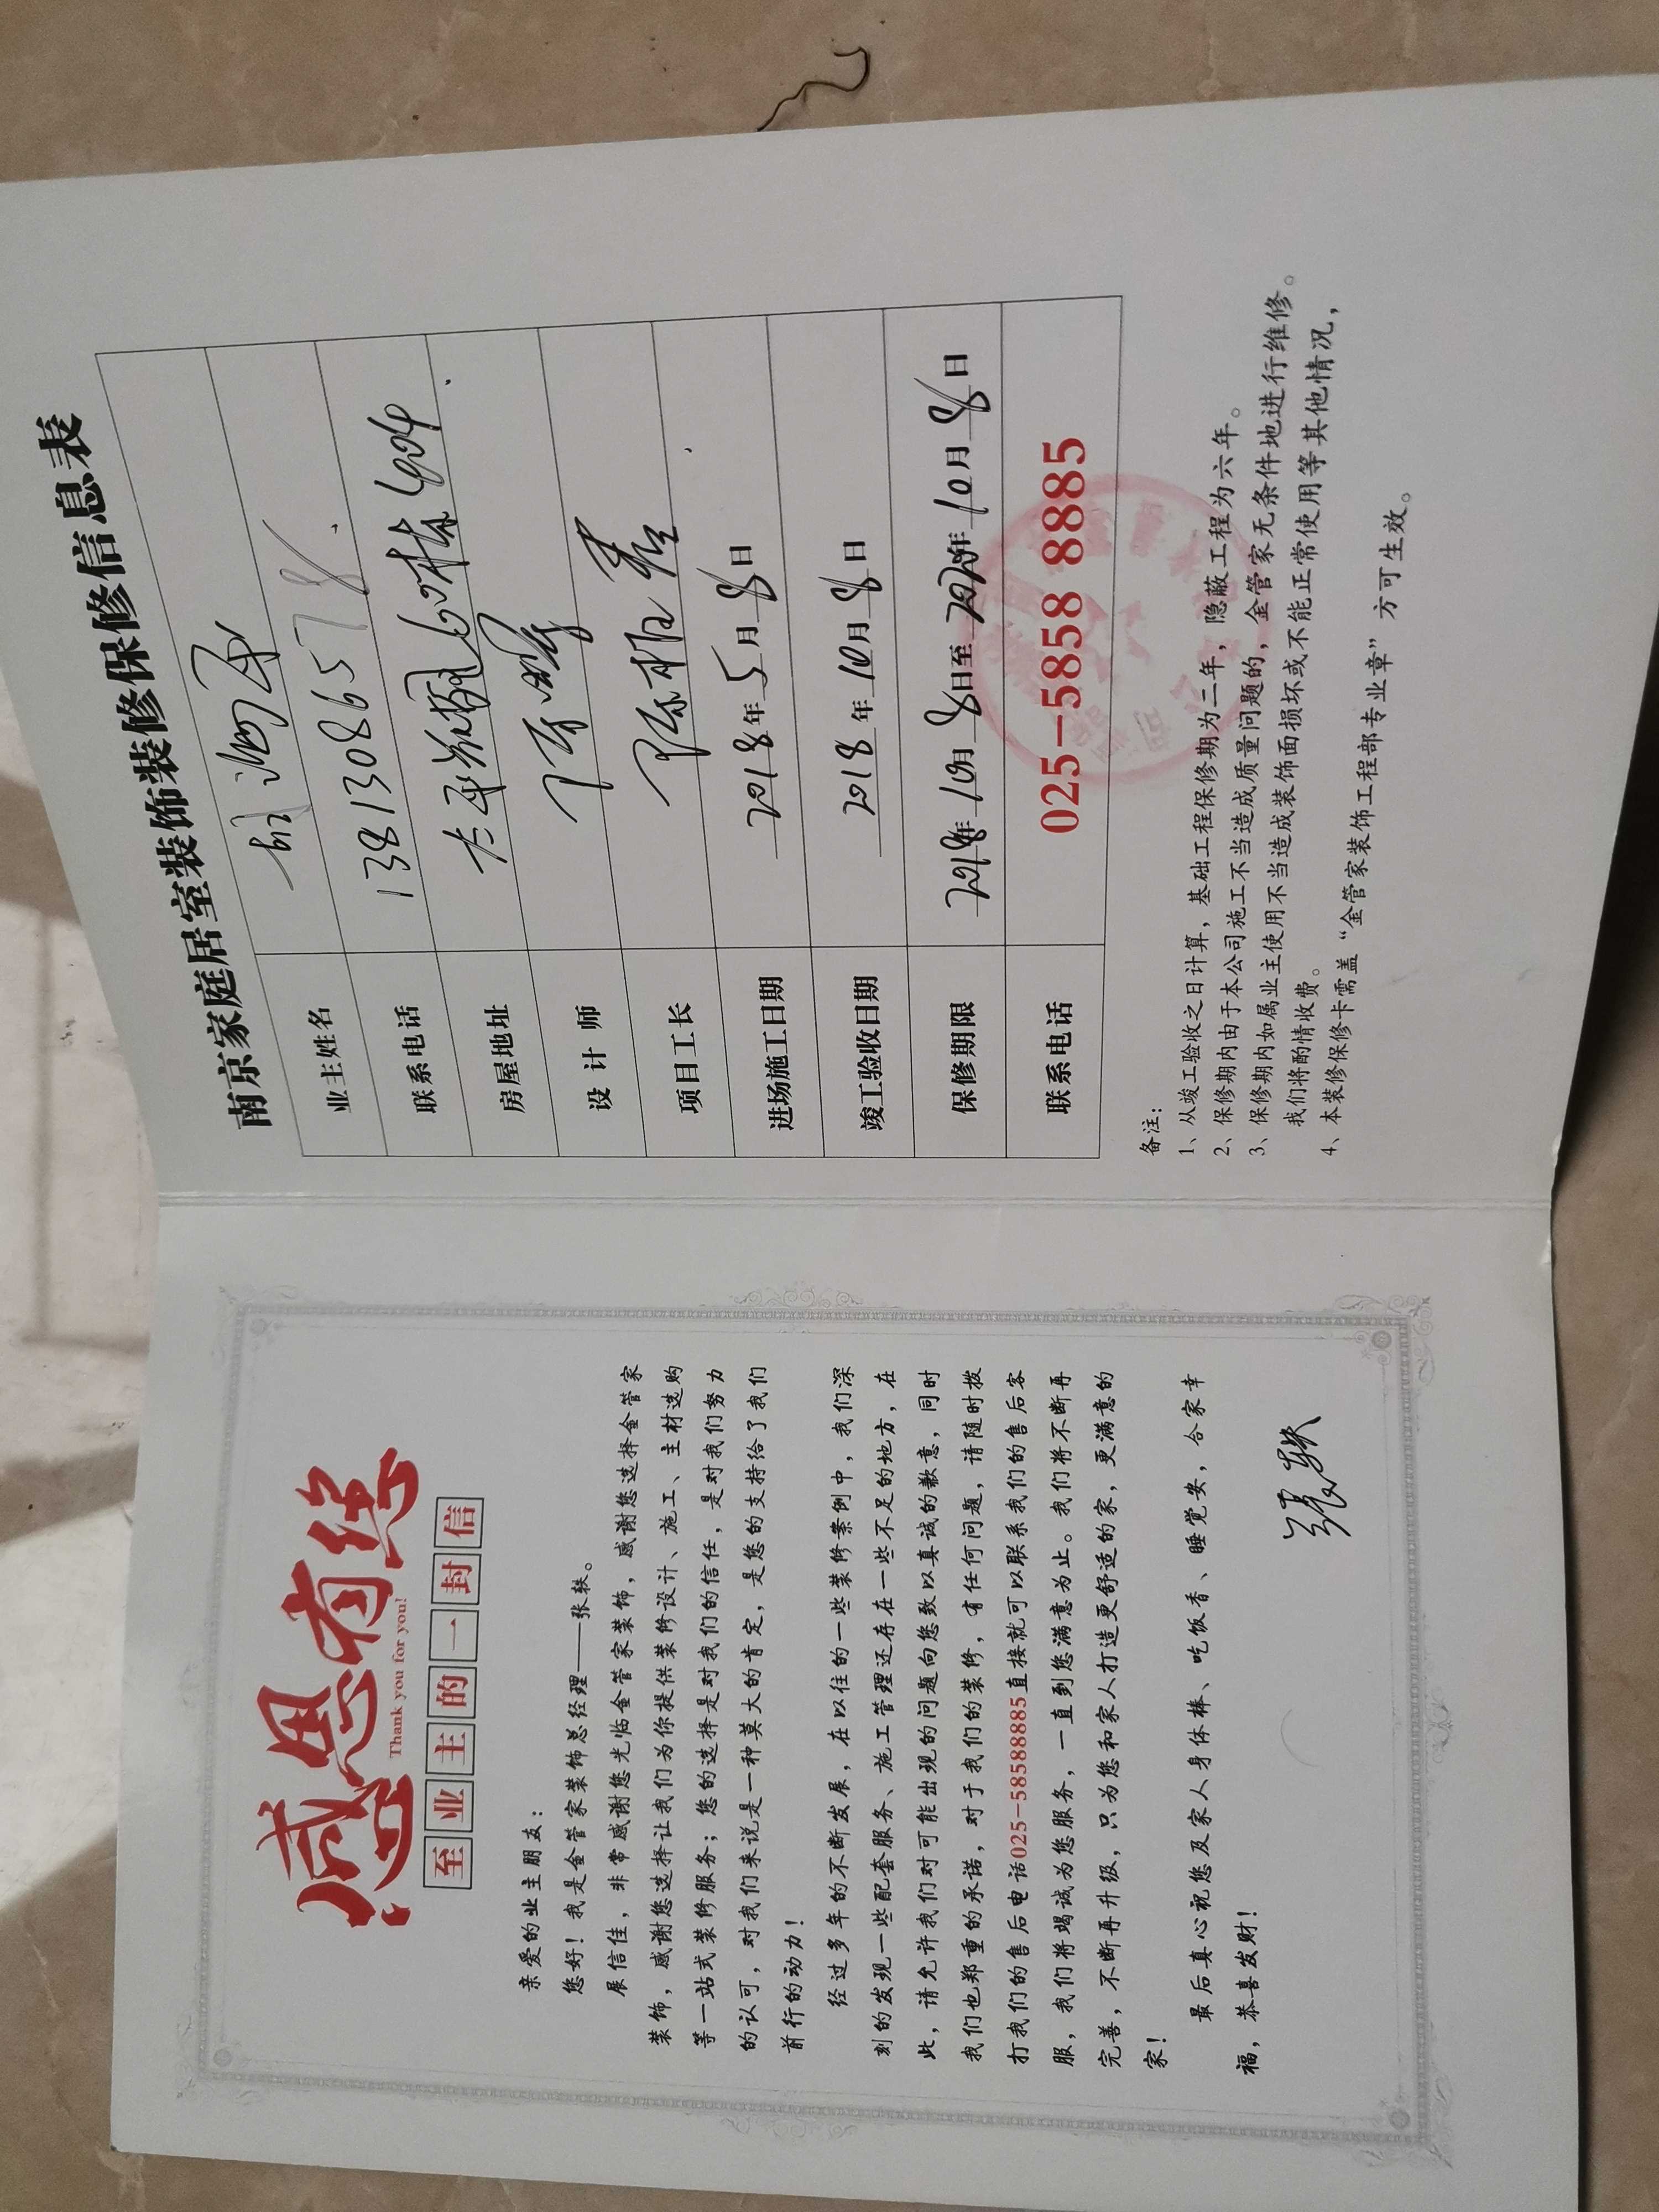 感恩有您
Thank you for you!
至业主的一封信
亲爱的业主朋友：
您好！我是金管家装饰总经理——张轶。
展信佳，非常感谢您光临金管家装饰，感谢您选择金管家
装饰，感谢您选择让我们为你提供装修设计、施工、主材选购
等一站式装修服务；您的选择是对我们的信任，是对我们努力
的认可，对我们来说是一种莫大的肯定，是您的支持给了我们
前行的动力！
经过多年的不断发展，在以往的一些装修案例中，我们深
刻的发现一些配套服务、施工管理还存在一些不足的地方，在
此，请允许我们对可能出现的问题向您致以真诚的歉意，同时
我们也郑重的承诺，对于我们的装修，有任何问题，请随时拨
打我们的售后电话025-58588885直接就可以联系我们的售后客
服，我们将竭诚为您服务，一直到您满意为止。我们将不断再
完善，不断再升级，只为您和家人打造更舒适的家，更满意的
家！
最后真心祝您及家人身体棒、吃饭香、睡觉安，合家幸
福，恭喜发财！
张轶
南京家庭居室装饰装修保修信息表
业主姓名
联系电话 13813086578
房屋地址 604
设计师
项目工长
进场施工日期 2018年5月8日
竣工验收日期 2018年10月8日
保修期限 2018年10月8日至2020年10月8日
联系电话 025-5858 8885
备注：
1、从竣工验收之日计算，基础工程保修期为二年，隐蔽工程为六年。
2、保修期内由于本公司施工不当造成质量问题的，金管家无条件地进行维修。
3、保修期内如属业主使用不当造成装饰面损坏或不能正常使用等其他情况，
我们将酌情收费。
4、本装修保修卡需盖“金管家装饰工程部专业章”方可生效。